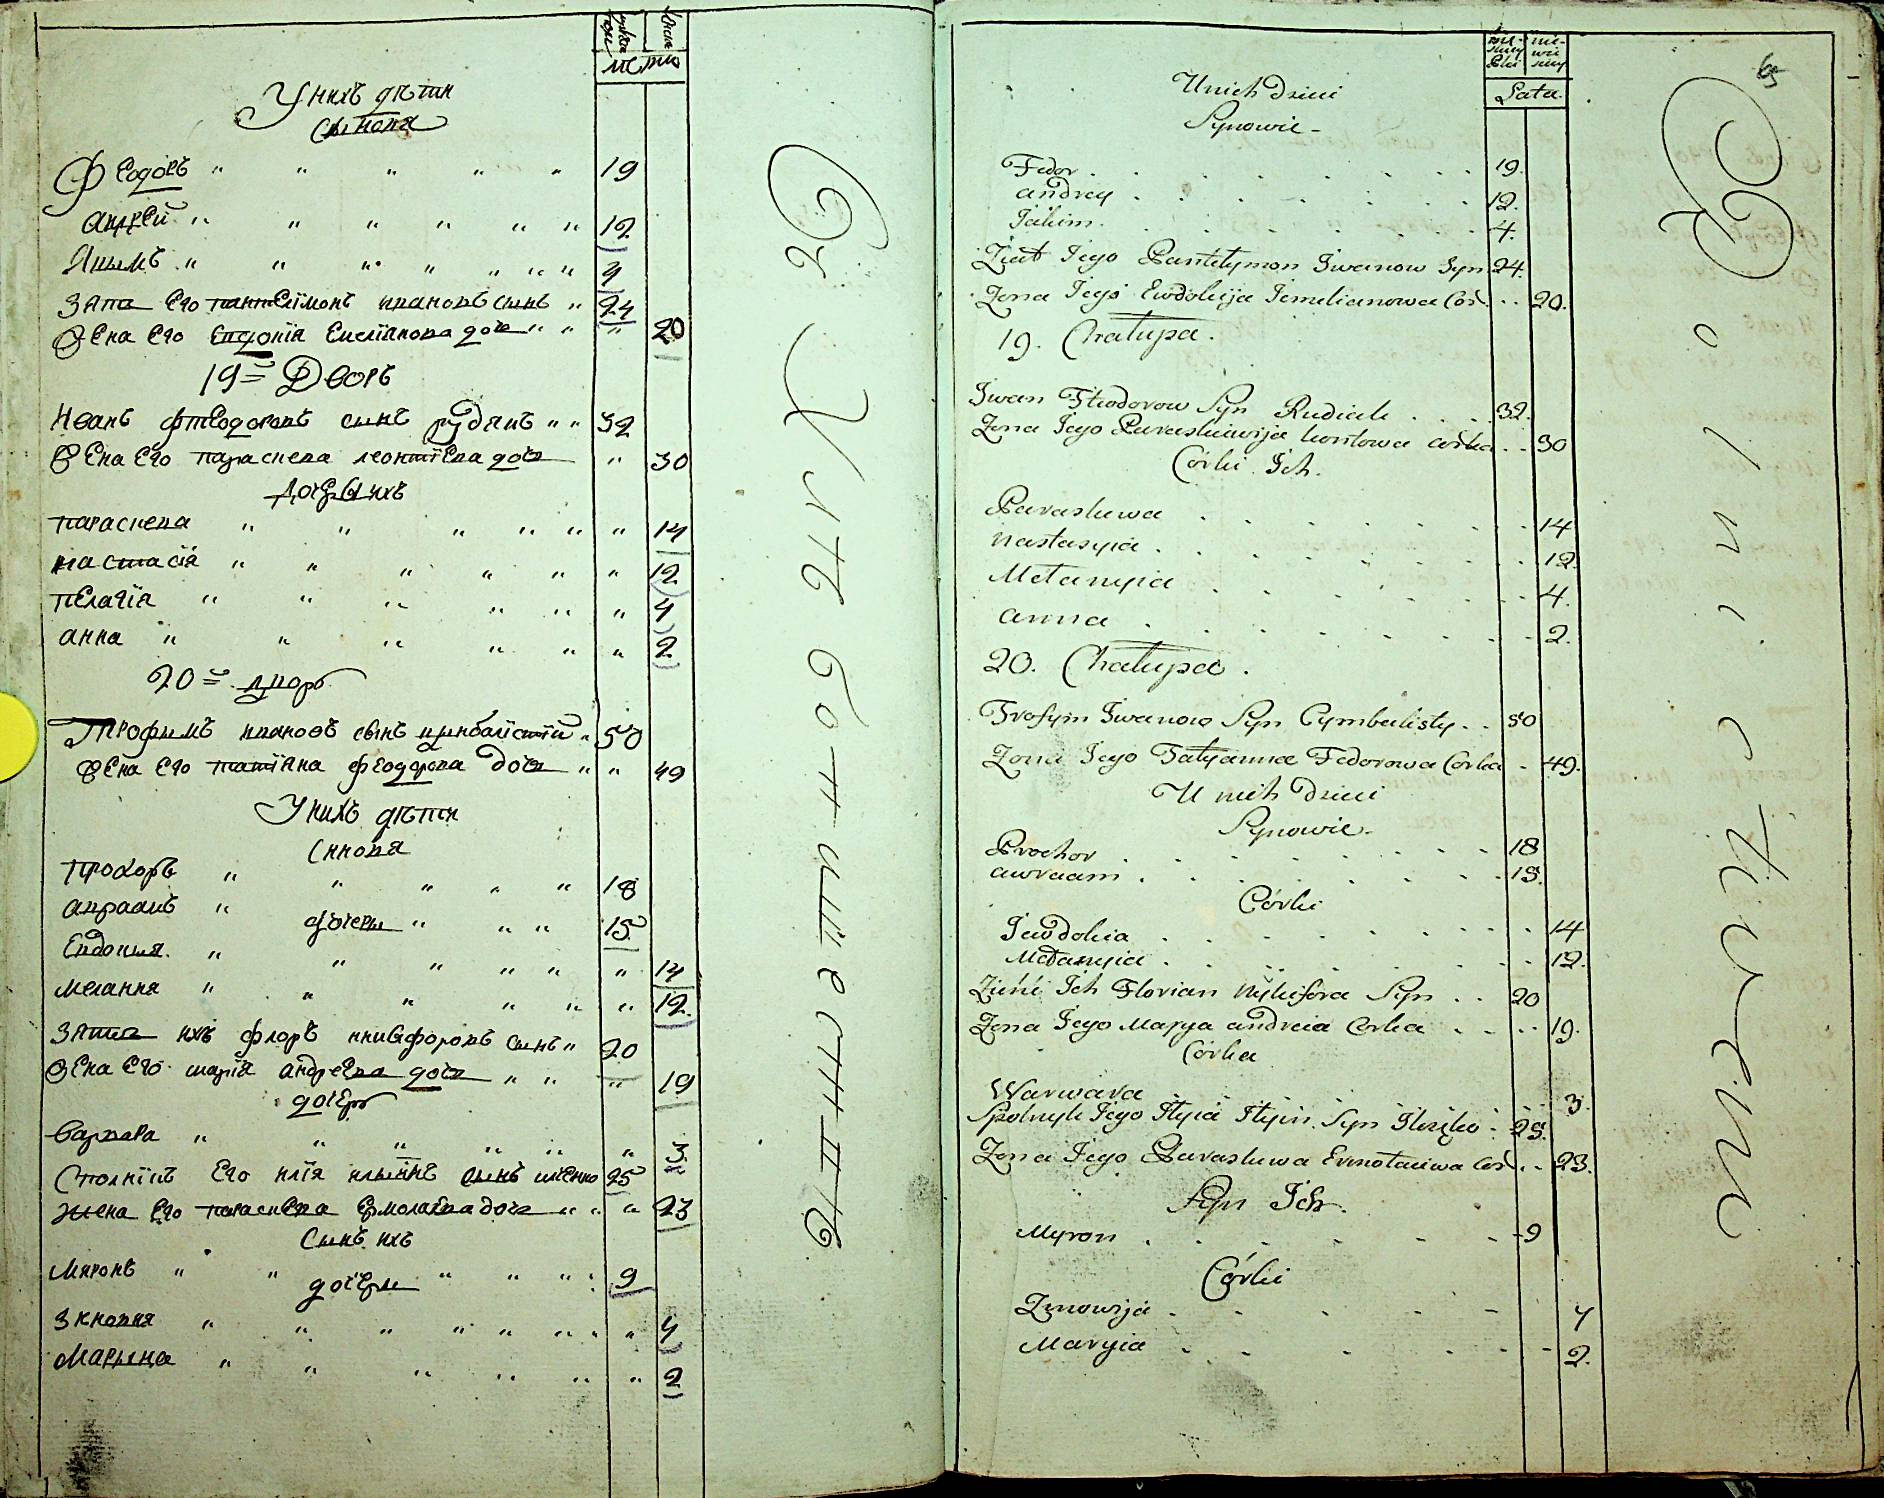 Унихъ дѣти
Сынова
Феодоръ 19
Андрей 12
Якымъ 4
Зять Его пантелїмонъ ивановъ сынъ 24
Жена Его Евдокїя Емелїанова доч 20
19 Дворъ
Иванъ фтеодоровъ сынъ рудикъ 32
Жена Его параскева леонтїева доч 30
дочеры ихъ
параскева 14
настасїя 12
пелагїя 4
анна 2
20 дворъ
Трофымъ ивановъ сынъ цымбалїстїй 50
Жена Его татїяна феодорова доч 49
Унихъ дѣти
Сынова
Прохоръ 18
авраамъ 15
дочеры
Евдокия 14
мелания 12
Зять ихъ флоръ никифоровъ сынъ 20
Жена Его марїя андреева доч 19
дочеръ
Варвара 3
Сполнїкъ Его илїя ильинъ сынъ 25
жена Его параскева Ермолаева доч 23
Сынъ ихъ
Миронъ 9
дочеры
Зиновия 4
Марына 2
Лата.
U nich dzieci
Synowie
Fedor 19.
andrey 12.
Jakim 4.
Ziat Jego Pantelymon Jwanow Syn 24.
Zona Jego Ewdokija Jemelianowa Cor. 20.
19. Chałupa.
Jwan Fteodorow Syn Rudick 32.
Zona Jego Paraskiewija leontowa corka 30
Córki Jch.
Paraskewa 14
nastasyia 12
Mełanyia 4.
anna 2.
20. Chałupa.
Trofym Jwanow Syn Cymbalisty 50
Zona Jego Tatyanna Fedorowa Corka 49.
U nich Dzieci
Synowie
Prochor 18
awraam 15.
Córki
Jewdokia 14
Mełanyia 12.
Zieńć Jch Florian Nykifora Syn 20
Zona Jego Marya andreia Corka 19.
Córka
Warwara 3.
Spolnyk Jego Jlyia Jlyin Syn 25.
Zona Jego Paraskewa Ermołaiwa Cor. 23.
Syn Jch.
Myron 9
Córki
Zinowija 4
Maryia 2.